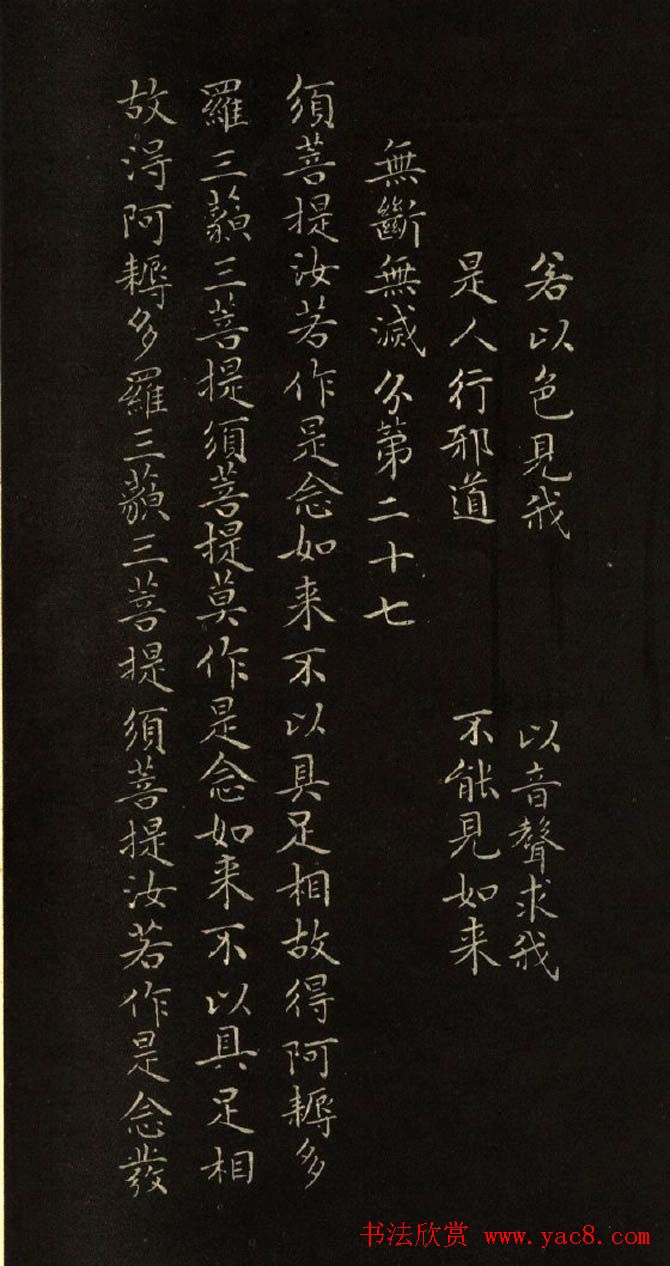 若以色見我 以音聲求我
是人行邪道 不能見如来
無斷無滅分第二十七
須菩提汝若作是念如来不以具足相故得阿耨多
羅三藐三菩提須菩提莫作是念如来不以具足相
故得阿耨多羅三藐三菩提須菩提汝若作是念發
书法欣赏 www.yac8.com